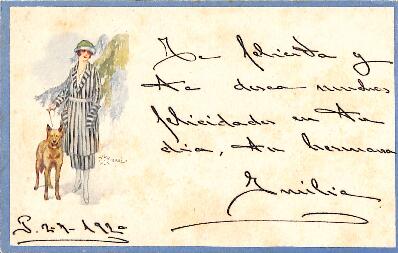 Te felicita y
te desea muchas
felicidades en tu
dia, tu hermana
Emilia